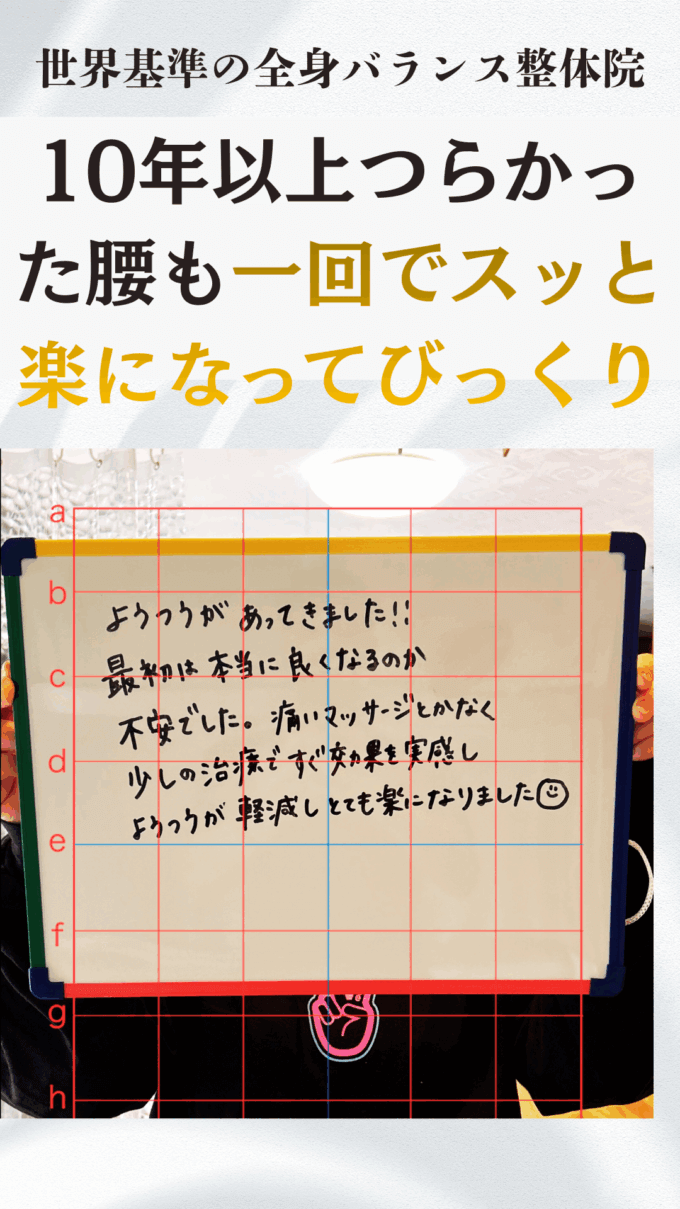 世界基準の全身バランス整体院
10年以上つらかっ
た腰も一回でスッと
楽になってびっくり
a
b
ようつうが あってきました!!
最初は 本当に 良くなるのか
c
不安でした。痛いマッサージとかなく
d
少しの治療で すぐ効果を実感し
ようつうが 軽減し とても楽になりました
e
f
g
h